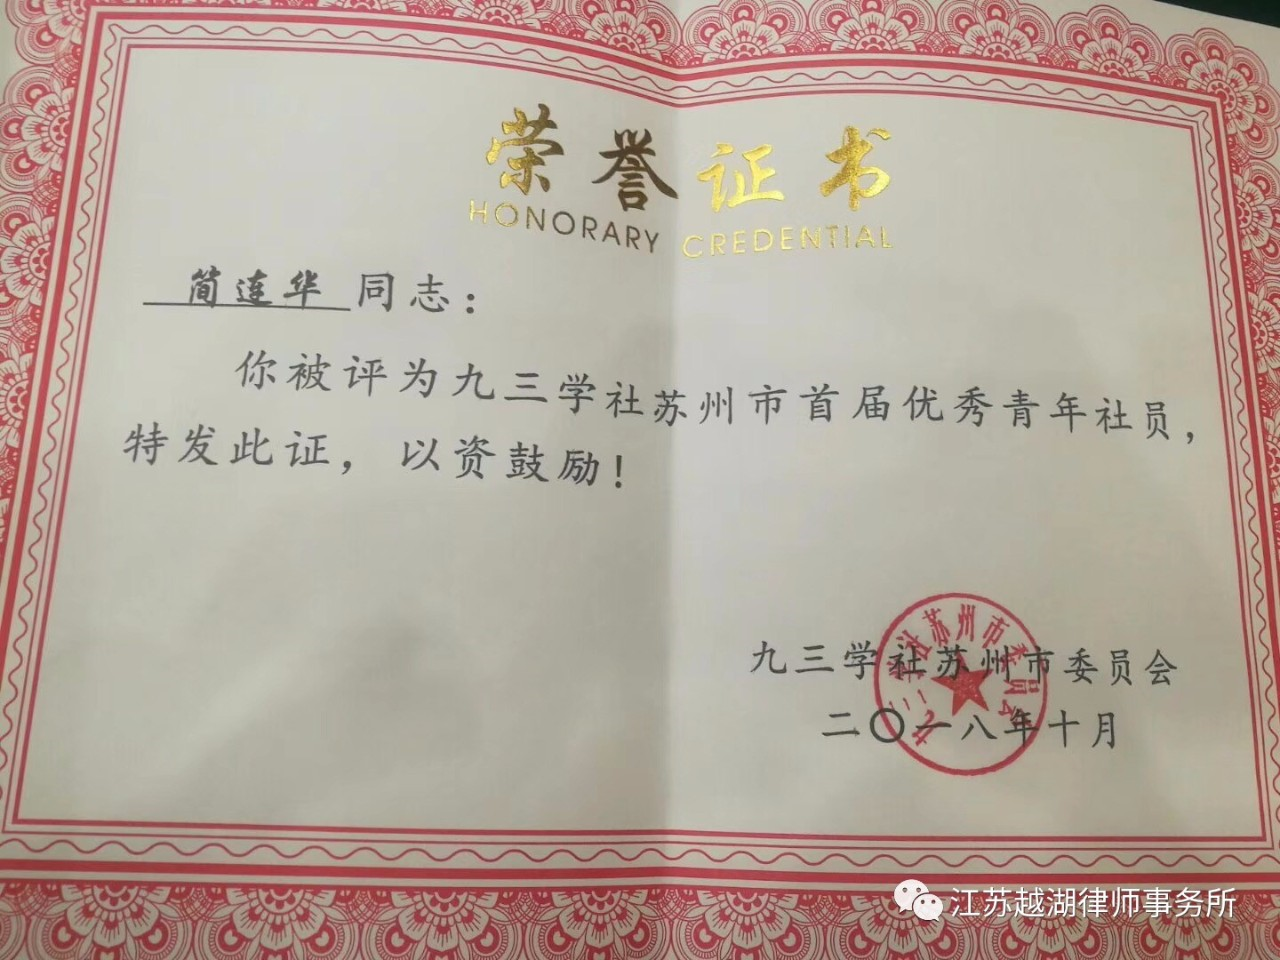 荣誉证书
HONORARY CREDENTIAL
简连华同志：
你被评为九三学社苏州市首届优秀青年社员，
特发此证，以资鼓励！
九三学社苏州市委员会
九三学社苏州市委员会
二〇一八年十月
江苏越湖律师事务所